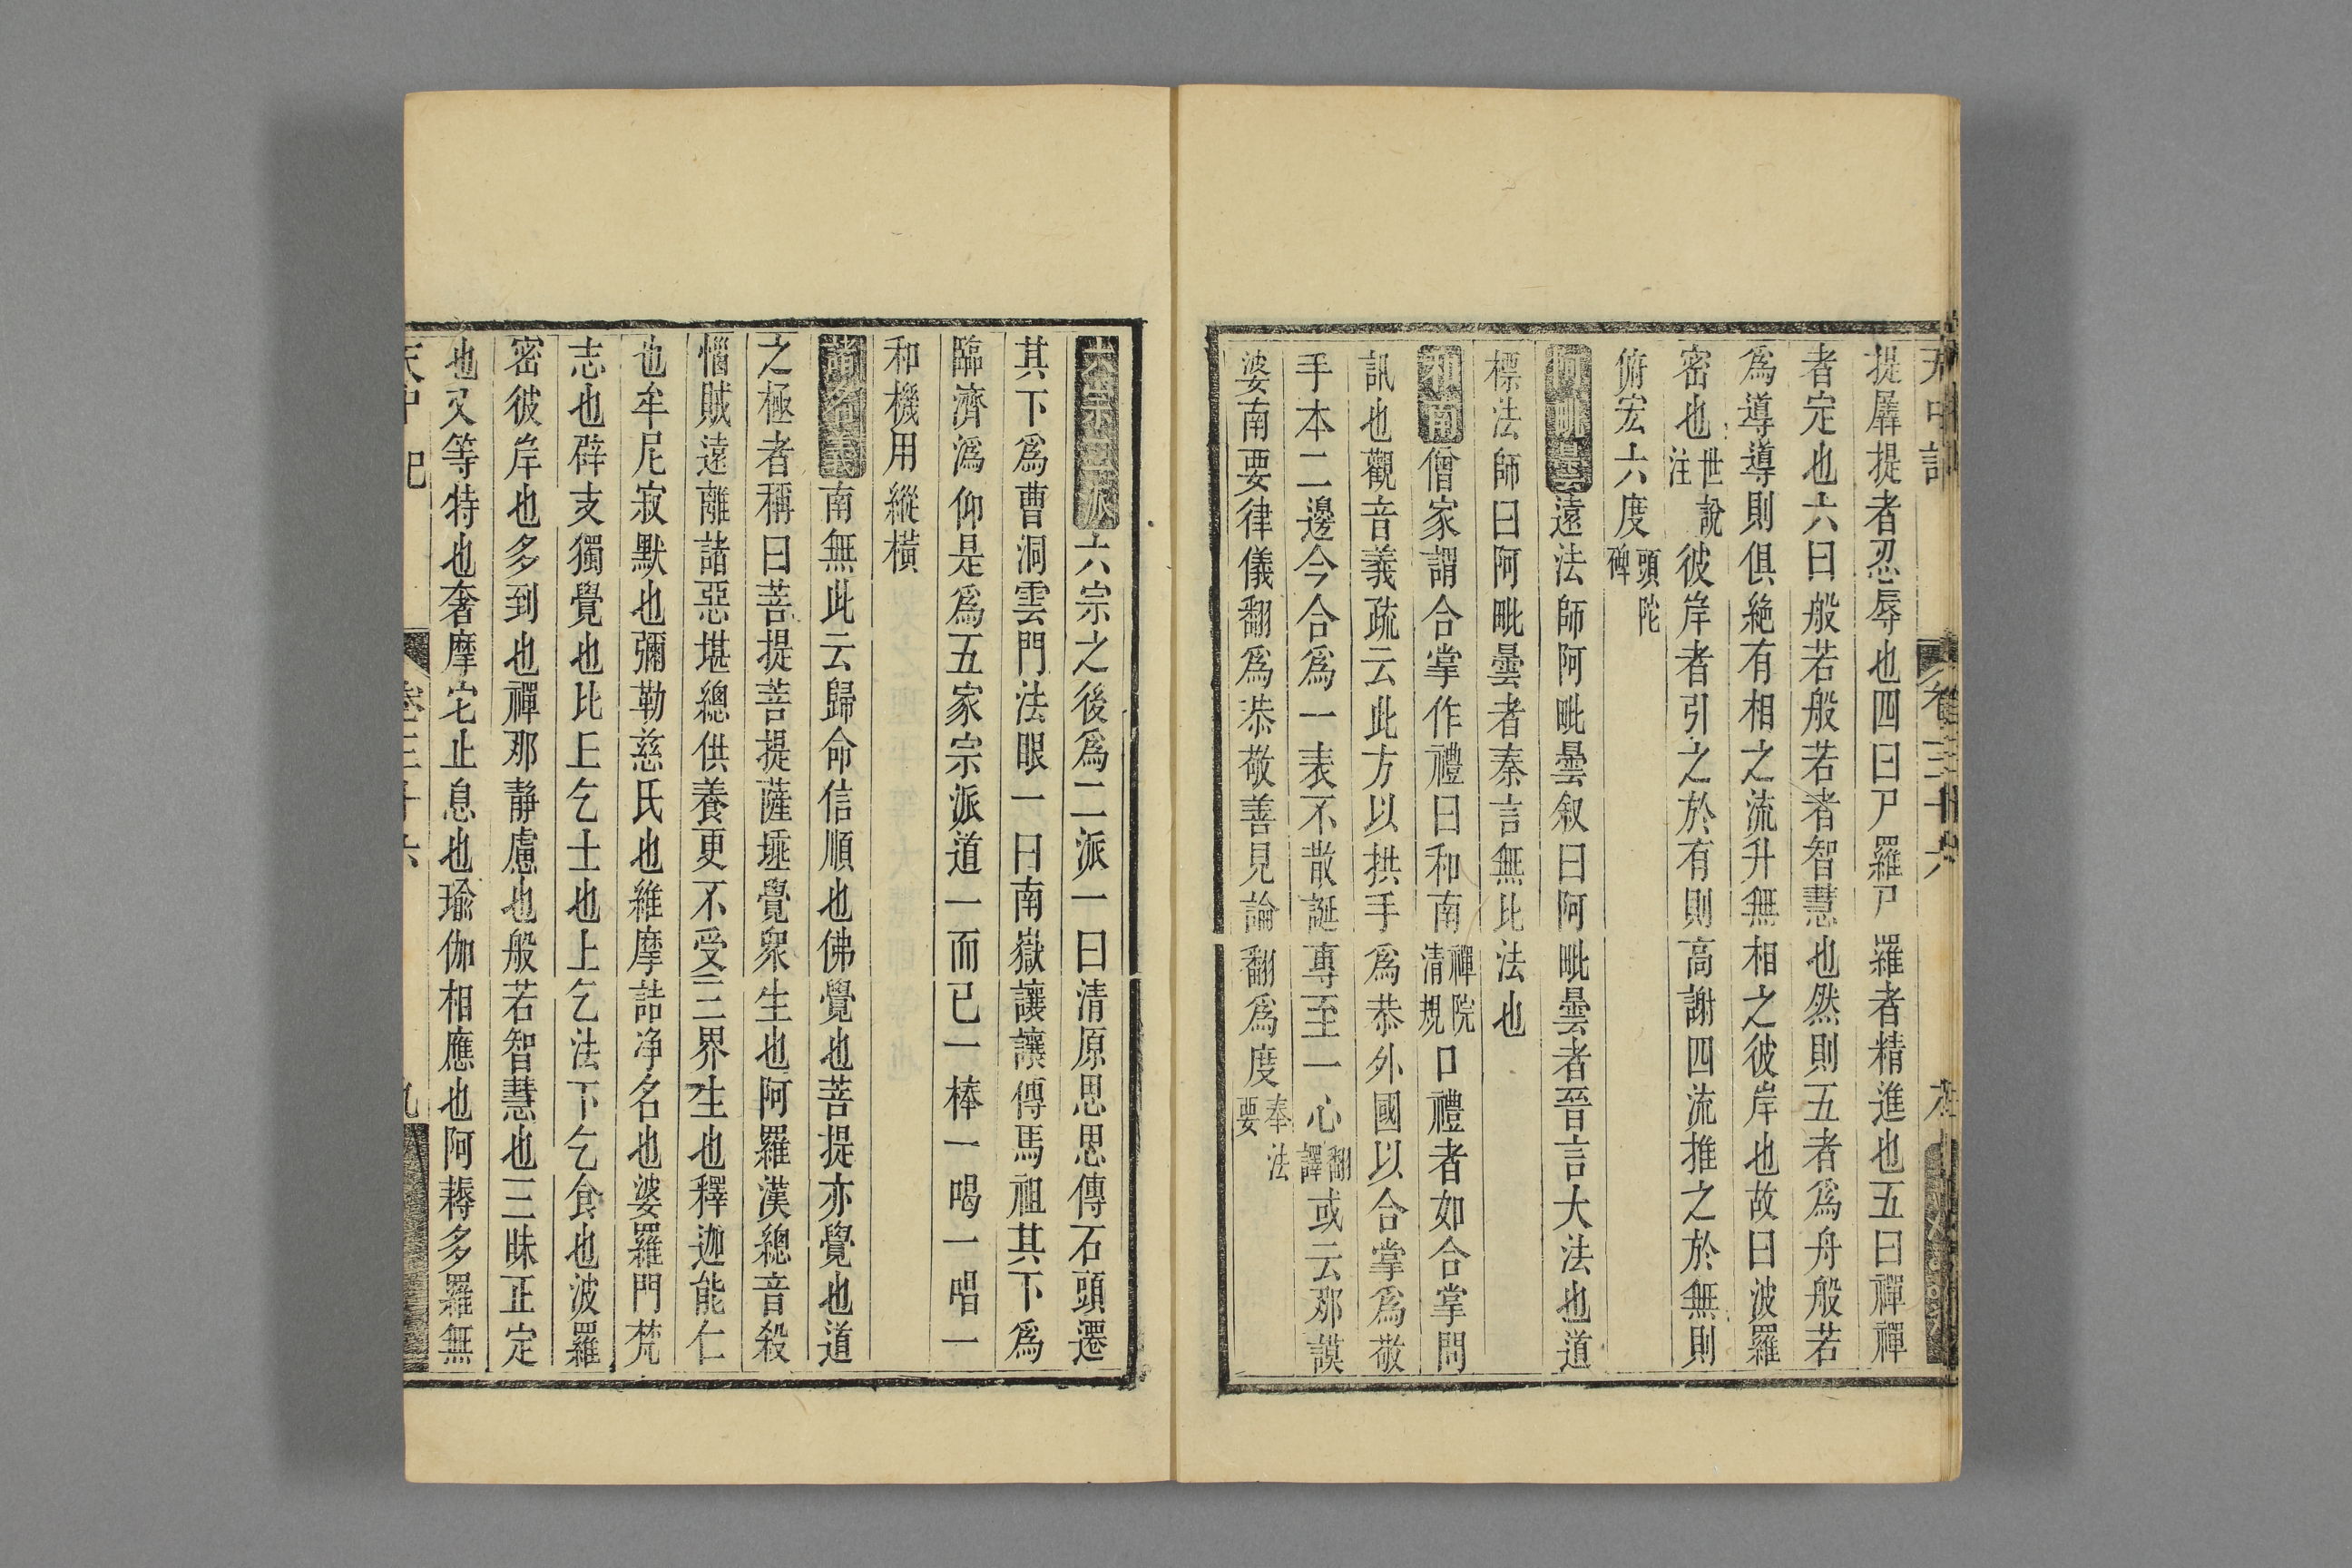 天中記
卷三十六
提羼提者忍辱也四曰尸羅尸羅者精進也五曰禪禪
者定也六曰般若般若者智慧也然則五者爲舟般若
爲導導則俱絶有相之流升無相之彼岸也故曰波羅
密也世說注彼岸者引之於有則高謝四流推之於無則
俯宏六度頭陀碑
阿毗曇遠法師阿毗曇叙曰阿毗曇者晉言大法也道
標法師曰阿毗曇者秦言無比法也
和南僧家謂合掌作禮曰和南禪院清規口禮者如合掌問
訊也觀音義疏云此方以拱手爲恭外國以合掌爲敬
手本二邊今合爲一表不散誕專至一心翻譯或云那謨
婆南要律儀翻爲恭敬善見論翻爲度奉法要
六宗二派六宗之後爲二派一曰清原思思傳石頭遷
其下爲曹洞雲門法眼一曰南嶽讓讓傳馬祖其下爲
臨濟潙仰是爲五家宗派道一而已一棒一喝一唱一
和機用縱橫
諸名義南無此云歸命信順也佛覺也菩提亦覺也道
之極者稱曰菩提菩提薩埵覺衆生也阿羅漢總音殺
惱賊遠離諸惡堪總供養更不受三界生也釋迦能仁
也牟尼寂默也彌勒慈氏也維摩詰净名也婆羅門梵
志也辟支獨覺也比丘乞士也上乞法下乞食也波羅
密彼岸也多到也禪那靜慮也般若智慧也三昧正定
也又等特也奢摩宅止息也瑜伽相應也阿耨多羅無
天中記
卷三十六
九